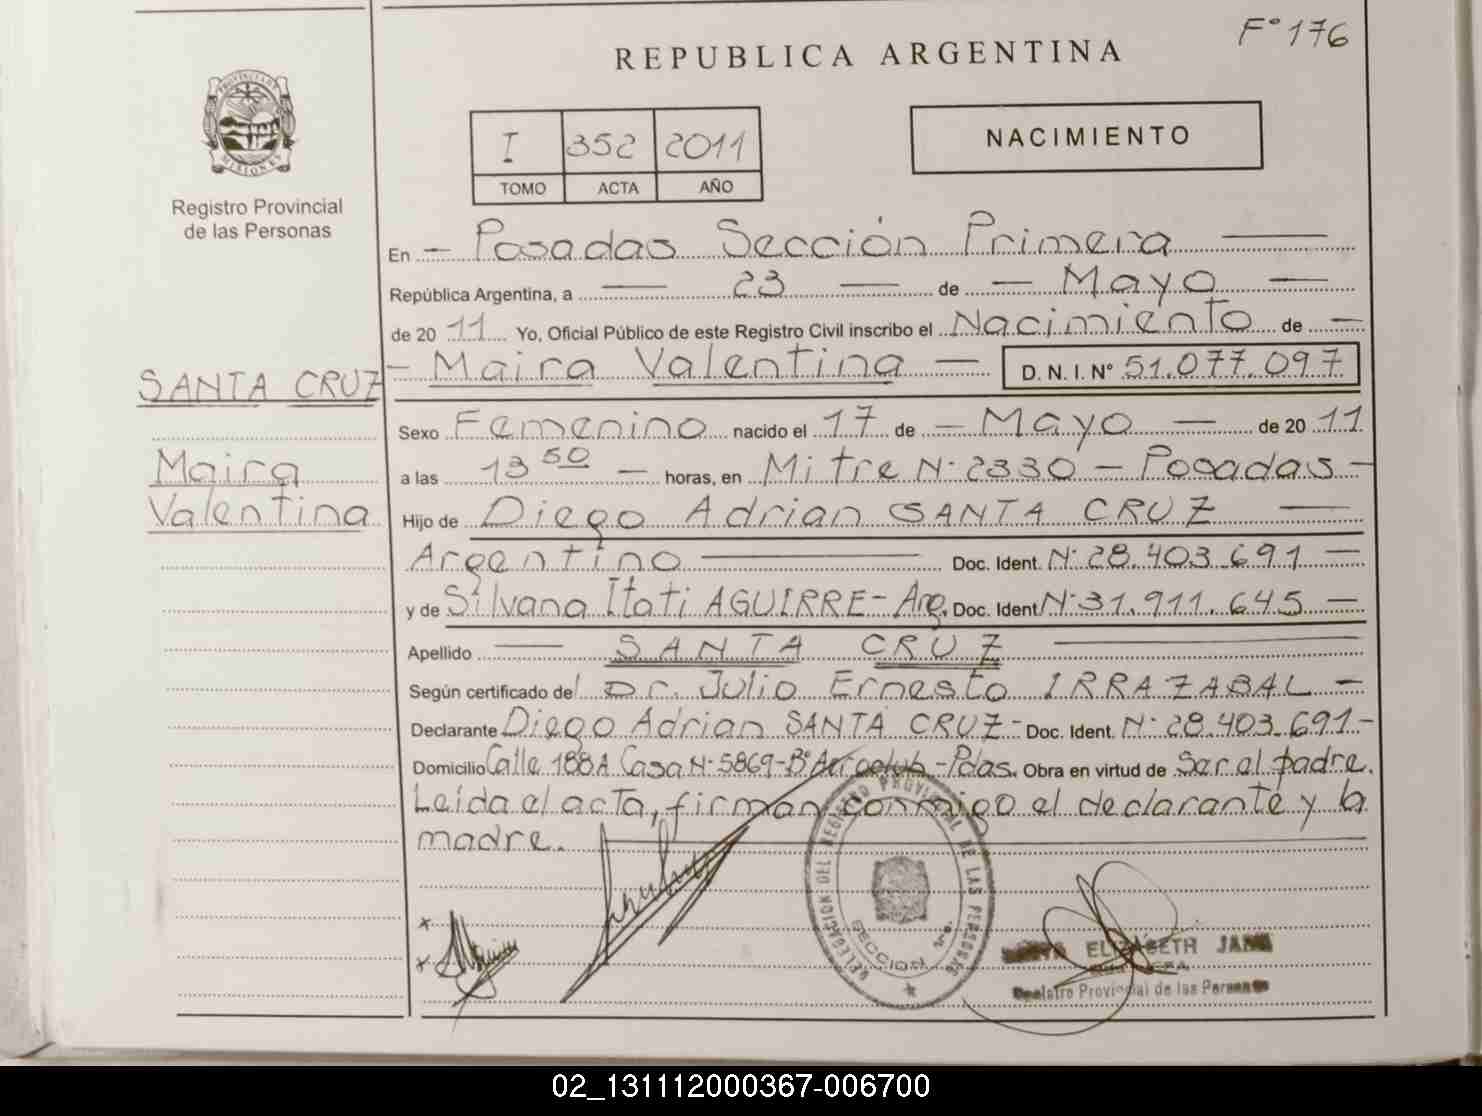 F° 176
REPUBLICA ARGENTINA
PROVINCIA DE
MISIONES
Registro Provincial
de las Personas
I 352 2011
TOMO ACTA AÑO
NACIMIENTO
En - Posadas Sección Primera
República Argentina, a 23 de Mayo
de 2011 Yo, Oficial Público de este Registro Civil inscribo el Nacimiento de
- Maira Valentina - D. N. I. N° 51.077.097
SANTA CRUZ
Maira
Valentina
Sexo Femenino nacido el 17 de - Mayo - de 2011
a las 13 50 - horas, en Mitre N° 2330 - Posadas -
Hijo de Diego Adrian SANTA CRUZ
Argentino Doc. Ident. N° 28.403.691 -
y de Silvana Itati AGUIRRE - Arg. Doc. Ident N° 31.911.645 -
Apellido SANTA CRUZ
Según certificado del Dr. Julio Ernesto IRRAZABAL -
Declarante Diego Adrian SANTA CRUZ - Doc. Ident. N° 28.403.691 -
Domicilio Calle 188A Casa N° 5869 - B° Aeroclub - Pdas. Obra en virtud de Ser el padre.
Leída el acta, firman conmigo el declarante y la
madre.
DELEGACION DEL REGISTRO PROVINCIAL DE LAS PERSONAS
SECCION 1ra.
ELIZABETH
Registro Provincial de las Personas
02_131112000367-006700